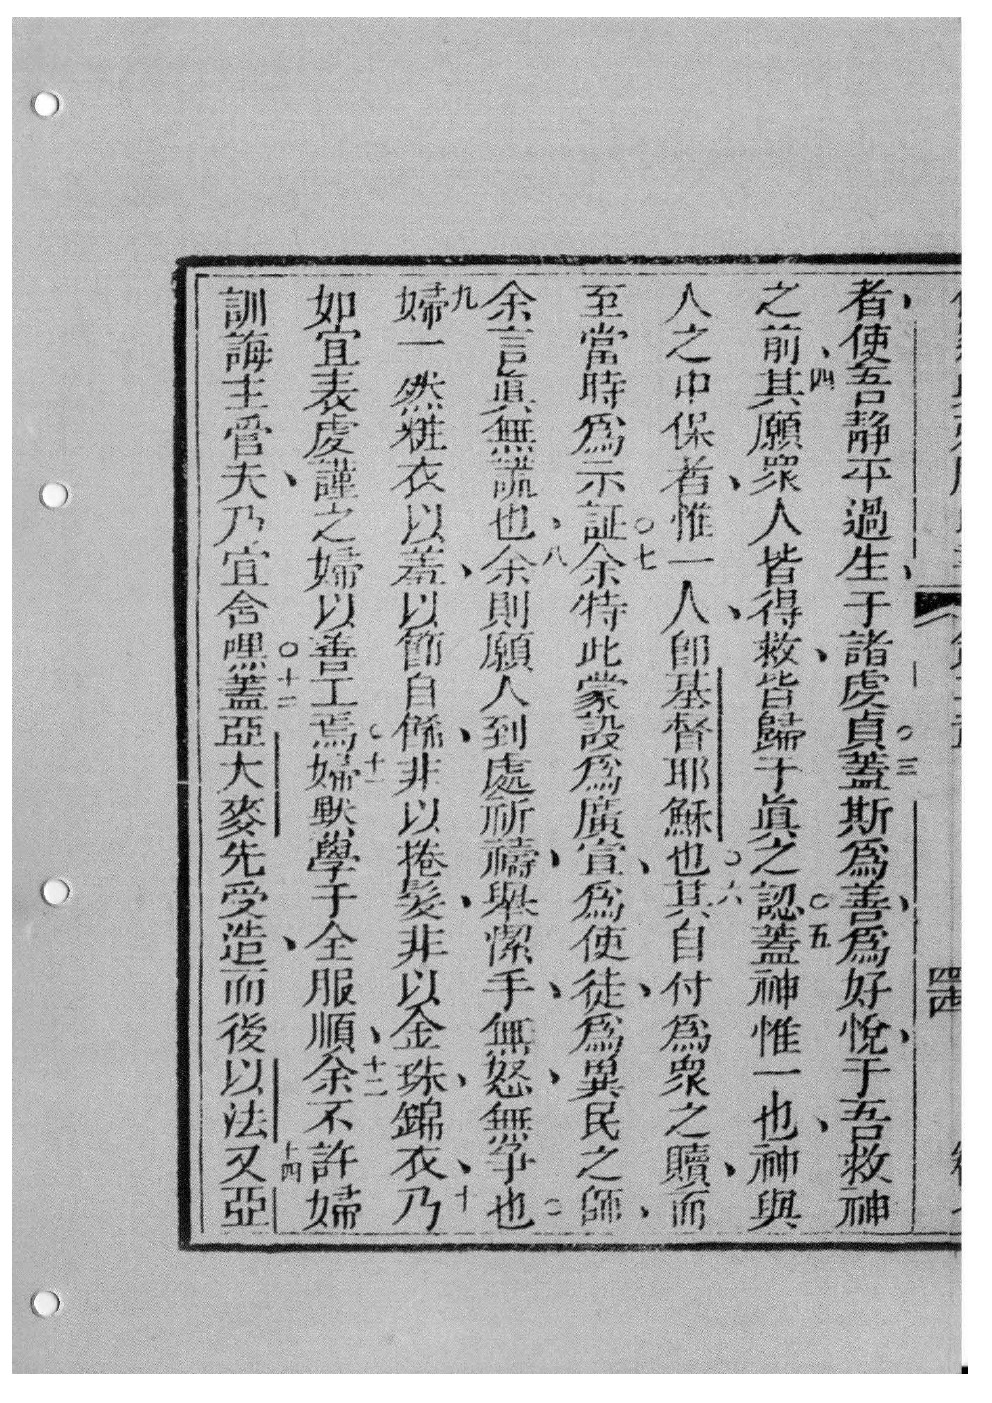 者使吾靜平過生于諸虔貞蓋斯為善為好悅于吾救神
之前其願眾人皆得救皆歸于眞之認蓋神惟一也神與
人之中保者惟一人卽基督耶穌也其自付為眾之贖而
至當時為示証余特此蒙設為廣宣為使徒為異民之師
余言眞無謊也余則願人到處祈禱舉潔手無怒無爭也
婦一然粧衣以羞以節自修非以捲髮非以金珠錦衣乃
如宜表虔謹之婦以善工焉婦默學于全服順余不許婦
訓誨主管夫乃宜含嘿蓋亞大麥先受造而後以法又亞
三
四
五
六
七
八
九
十
十一
十二
十三
十四